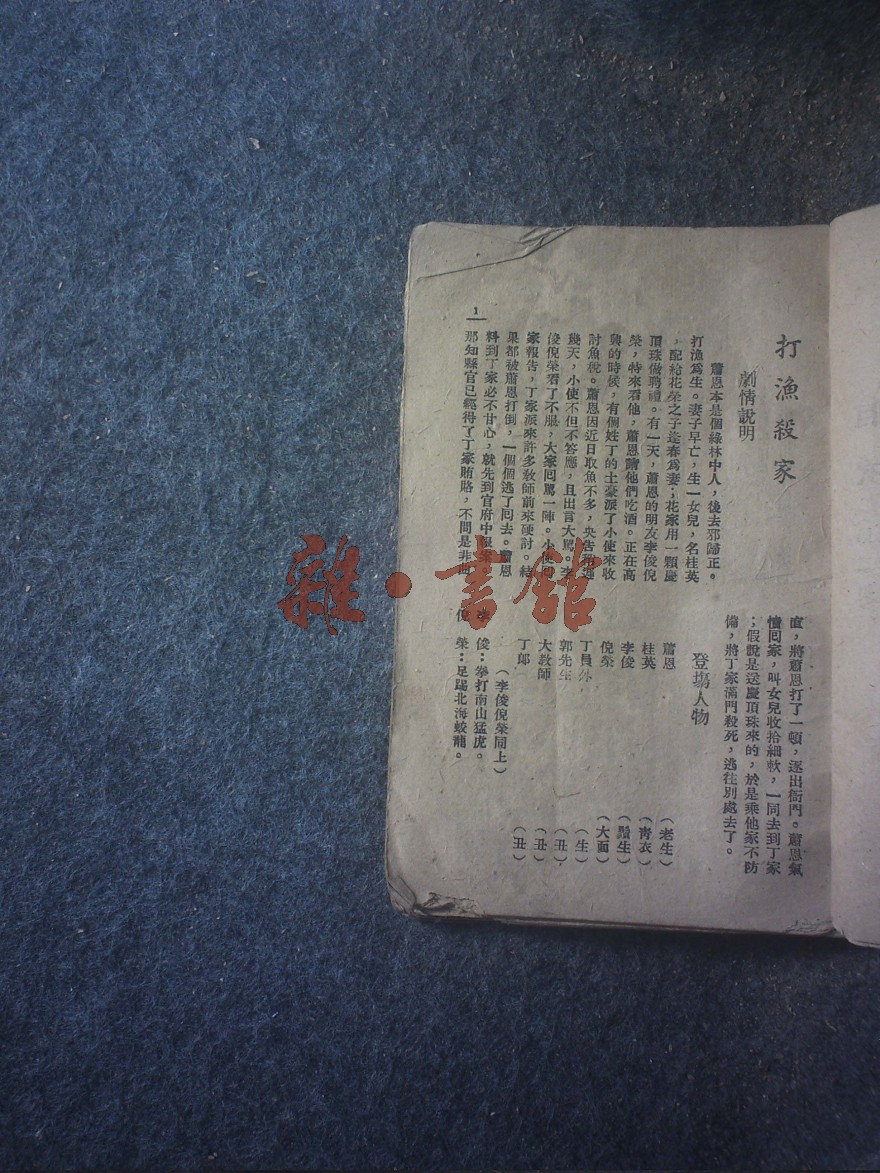 打漁殺家
劇情說明
蕭恩本是個綠林中人，後去邪歸正。
打漁爲生。妻子早亡，生一女兒，名桂英
，配給花榮之子逢春爲妻；花家用一顆慶
頂珠做聘禮。有一天，蕭恩的朋友李俊倪
榮，特來看他，蕭恩請他們吃酒。正在高
興的時候，有個姓丁的土豪派了小使來收
討魚稅。蕭恩因近日取魚不多，央告
幾天，小使不但不答應，且出言大罵。李
俊倪榮看了不服，大家回罵一陣。小使回
家報告，丁家派來許多敎師前來硬討。結
果都被蕭恩打倒，一個個逃了回去。蕭恩
料到丁家必不甘心，就先到官府中
那知縣官已經得了丁家賄賂，不問是非曲
直，將蕭恩打了一頓，逐出衙門。蕭恩氣
憤回家，叫女兒收拾細軟，一同去到丁家
；假說是送慶頂珠來的，於是乘他家不防
備，將丁家滿門殺死，逃往別處去了。
登塲人物
蕭恩 （老生）
桂英 （靑衣）
李俊 （鬚生）
倪榮 （大面）
丁員外 （生）
郭先生 （丑）
大敎師 （丑）
丁郎 （丑）
（李俊倪榮同上）
李俊：拳打南山猛虎。
倪榮：足踢北海蛟龍。
1
雜·書館